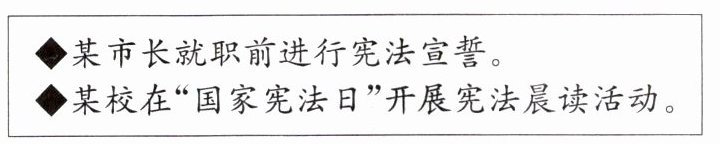 ◆某市长就职前进行宪法宣誓。
◆某校在“国家宪法日”开展宪法晨读活动。